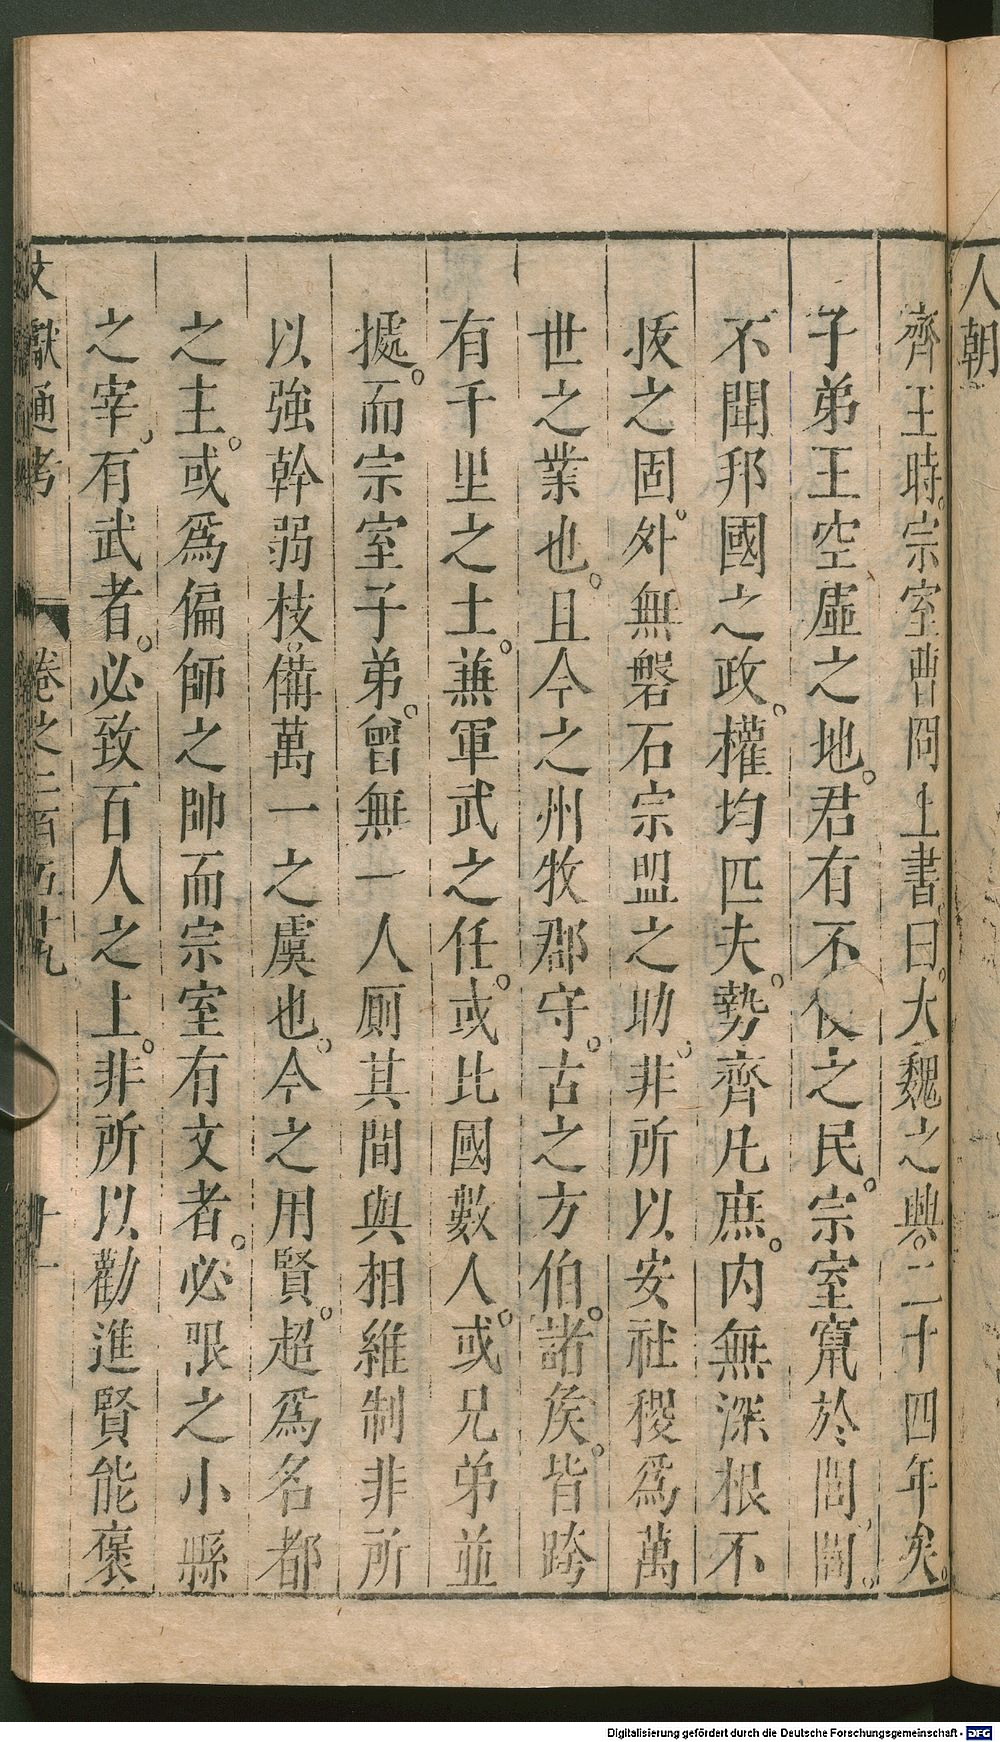 人朝
齊王時。宗室曹冏上書曰。大魏之興。二十四年矣。
子弟王空虛之地。君有不使之民。宗室竄於閭閻。
不聞邦國之政。權均匹夫。勢齊凡庶。内無深根不
拔之固。外無磐石宗盟之助。非所以安社稷爲萬
世之業也。且今之州牧郡守。古之方伯。諸侯。皆跨
有千里之土。兼軍武之任。或比國數人。或兄弟並
據。而宗室子弟。曾無一人厠其間與相維制非所
以強幹弱枝。備萬一之虞也。今之用賢。超爲名都
之主。或爲偏師之帥而宗室有文者。必限之小縣
之宰。有武者。必致百人之上。非所以勸進賢能褒
文獻通考 卷之二百五十九 十一
Digitalisierung gefördert durch die Deutsche Forschungsgemeinschaft - DFG